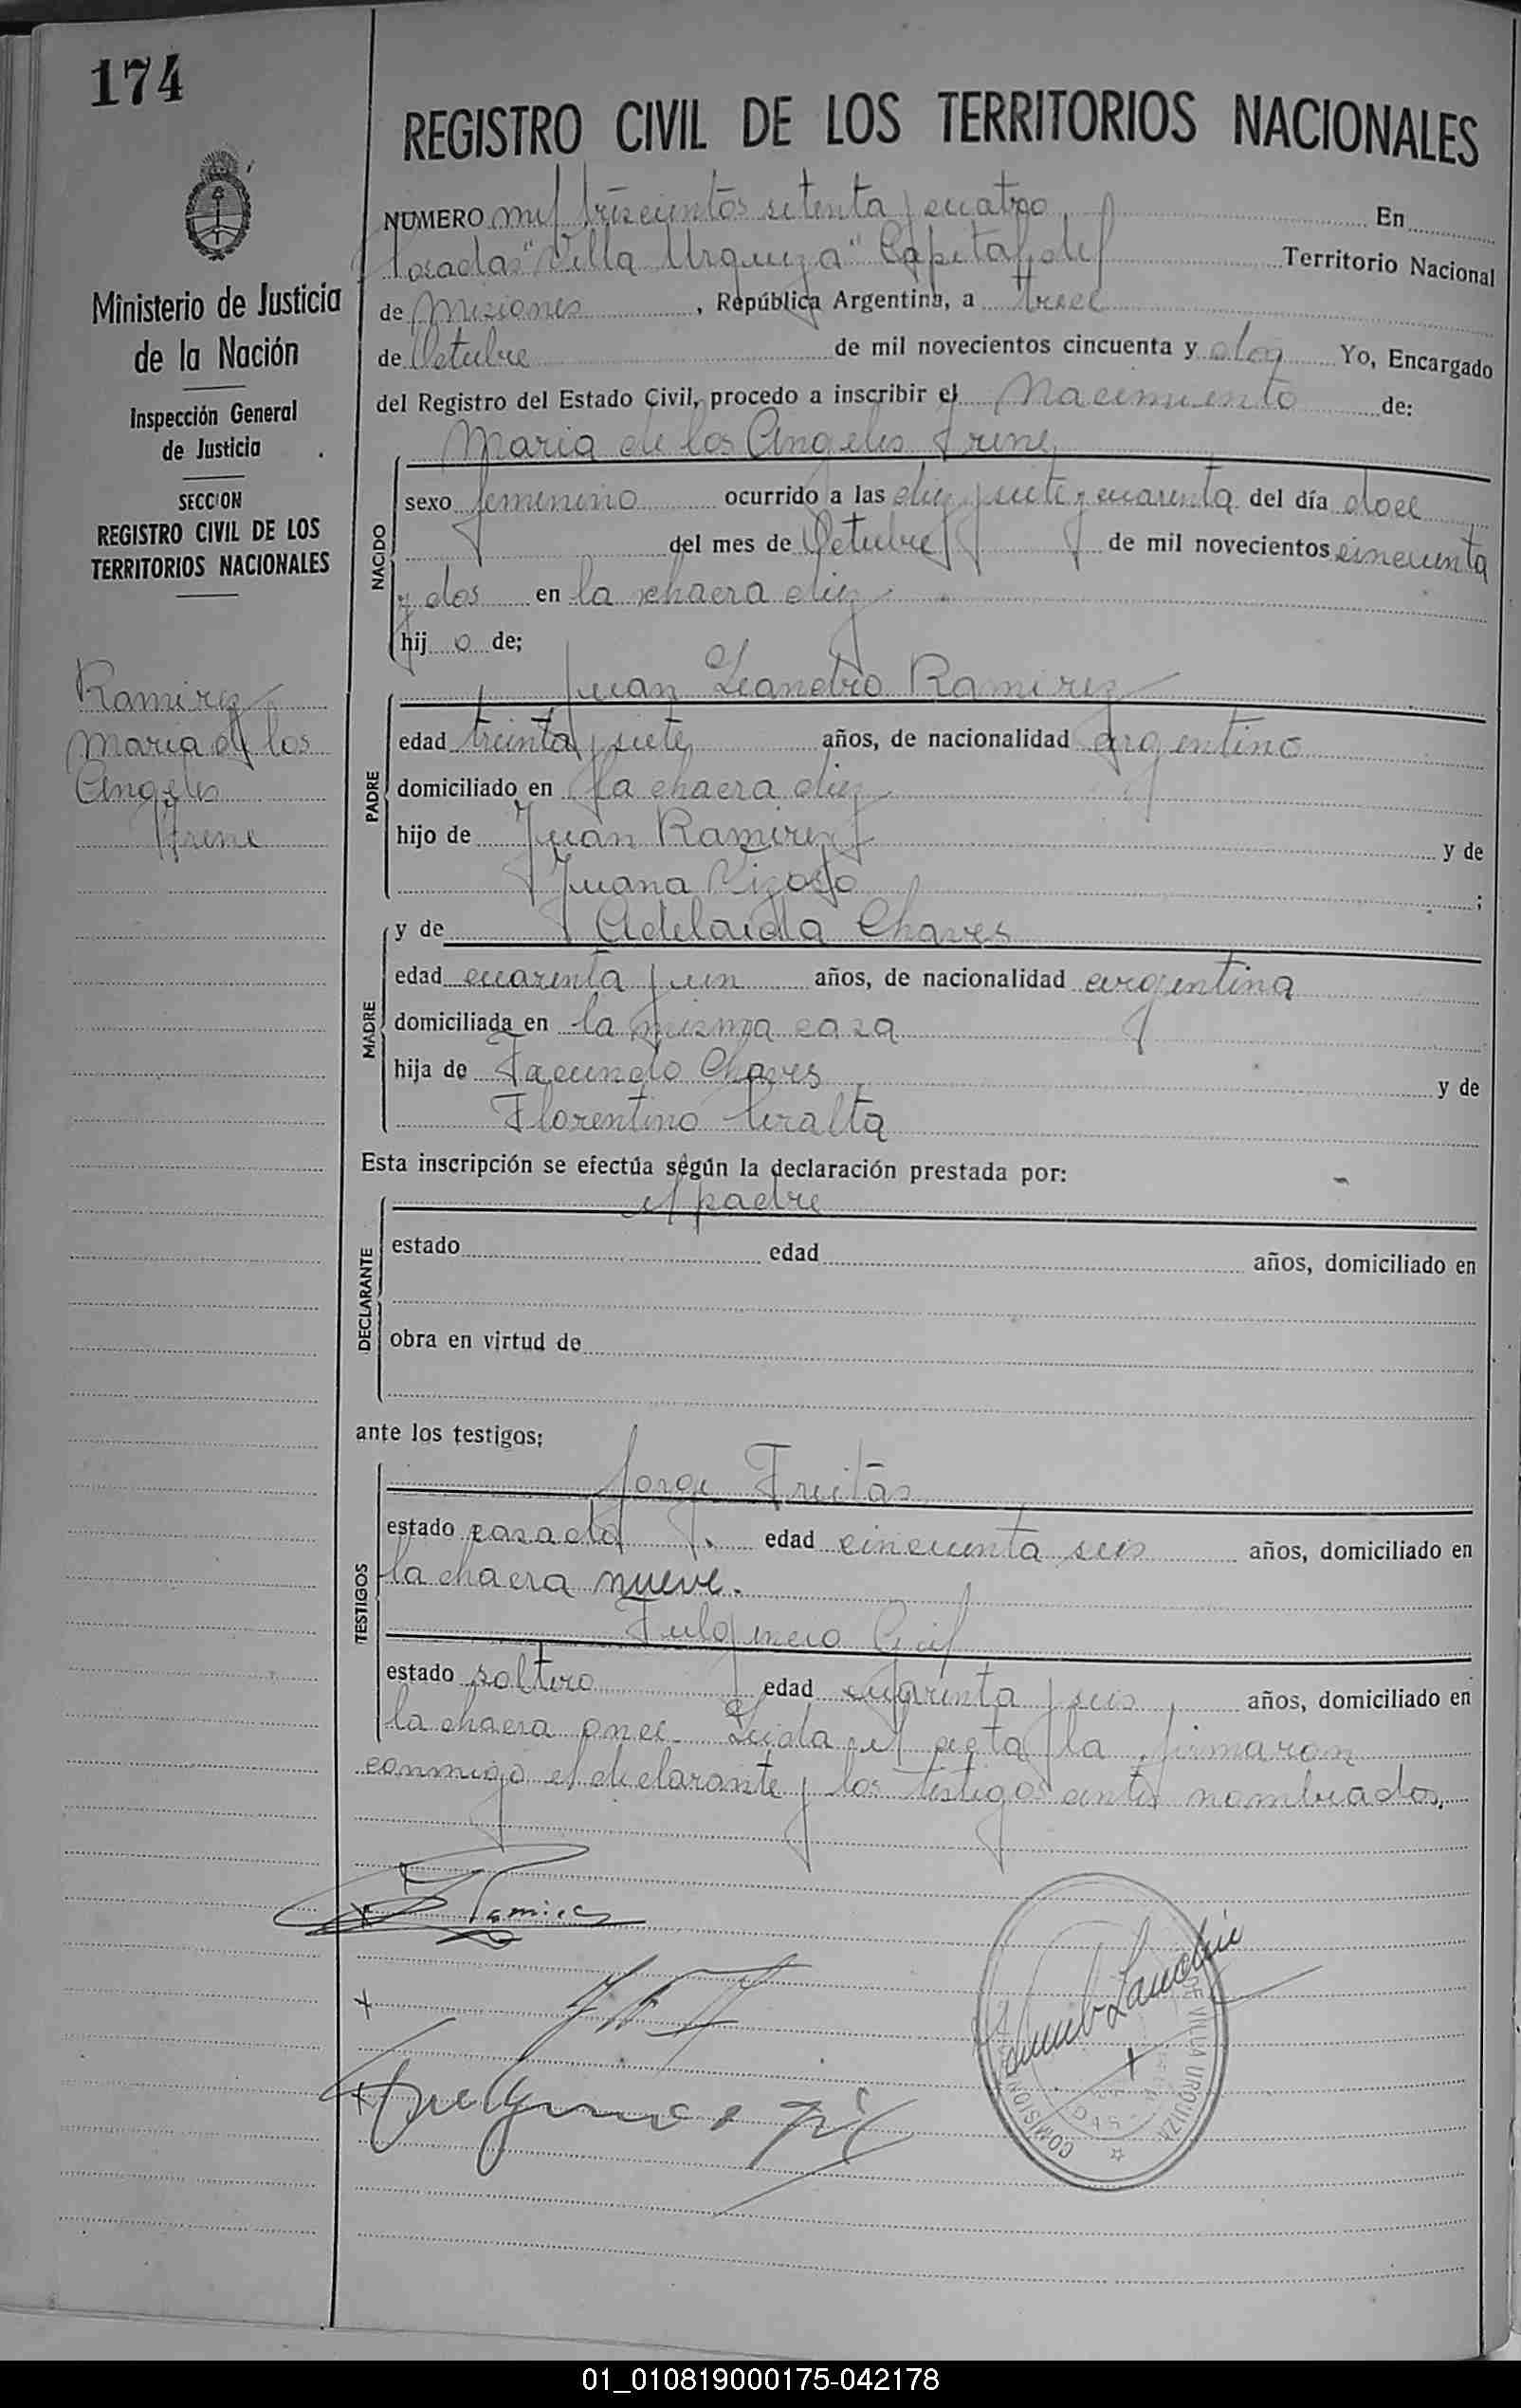 174
REGISTRO CIVIL DE LOS TERRITORIOS NACIONALES
Ministerio de Justicia
de la Nación
Inspección General
de Justicia
SECCION
REGISTRO CIVIL DE LOS
TERRITORIOS NACIONALES
Ramirez
Maria de los
Angeles
Irene
NUMERO mil trescientos setenta y cuatro En
Posadas "Villa Urquiza" Capital del Territorio Nacional
de Misiones, República Argentina, a trece
de Octubre de mil novecientos cincuenta y dos Yo, Encargado
del Registro del Estado Civil, procedo a inscribir el Nacimiento de:
Maria de los Angeles Irene
NACIDO
sexo femenino ocurrido a las diez y siete y cuarenta del día doce
del mes de Octubre de mil novecientos cincuenta
y dos en la chacra diez
hij o de;
PADRE
Juan Leandro Ramirez
edad treinta y siete años, de nacionalidad argentino
domiciliado en la chacra diez
hijo de Juan Ramirez y de
Juana ;
MADRE
y de Adelaida Chaves
edad cuarenta y un años, de nacionalidad argentina
domiciliada en la misma casa
hija de Facundo Chaves y de
Florentino Peralta
Esta inscripción se efectúa según la declaración prestada por:
el padre
DECLARANTE
estado edad años, domiciliado en
obra en virtud de
ante los testigos;
TESTIGOS
Jorge Freitas
estado casado edad cincuenta seis años, domiciliado en
la chacra nueve.
Fulgencio Gil
estado soltero edad cuarenta y seis, años, domiciliado en
la chacra once. Leida el acta la firmaron
conmigo el declarante y los testigos antes nombrados.
Ramirez
Fulgencio Gil
COMISION DE VILLA URQUIZA
01_010819000175-042178